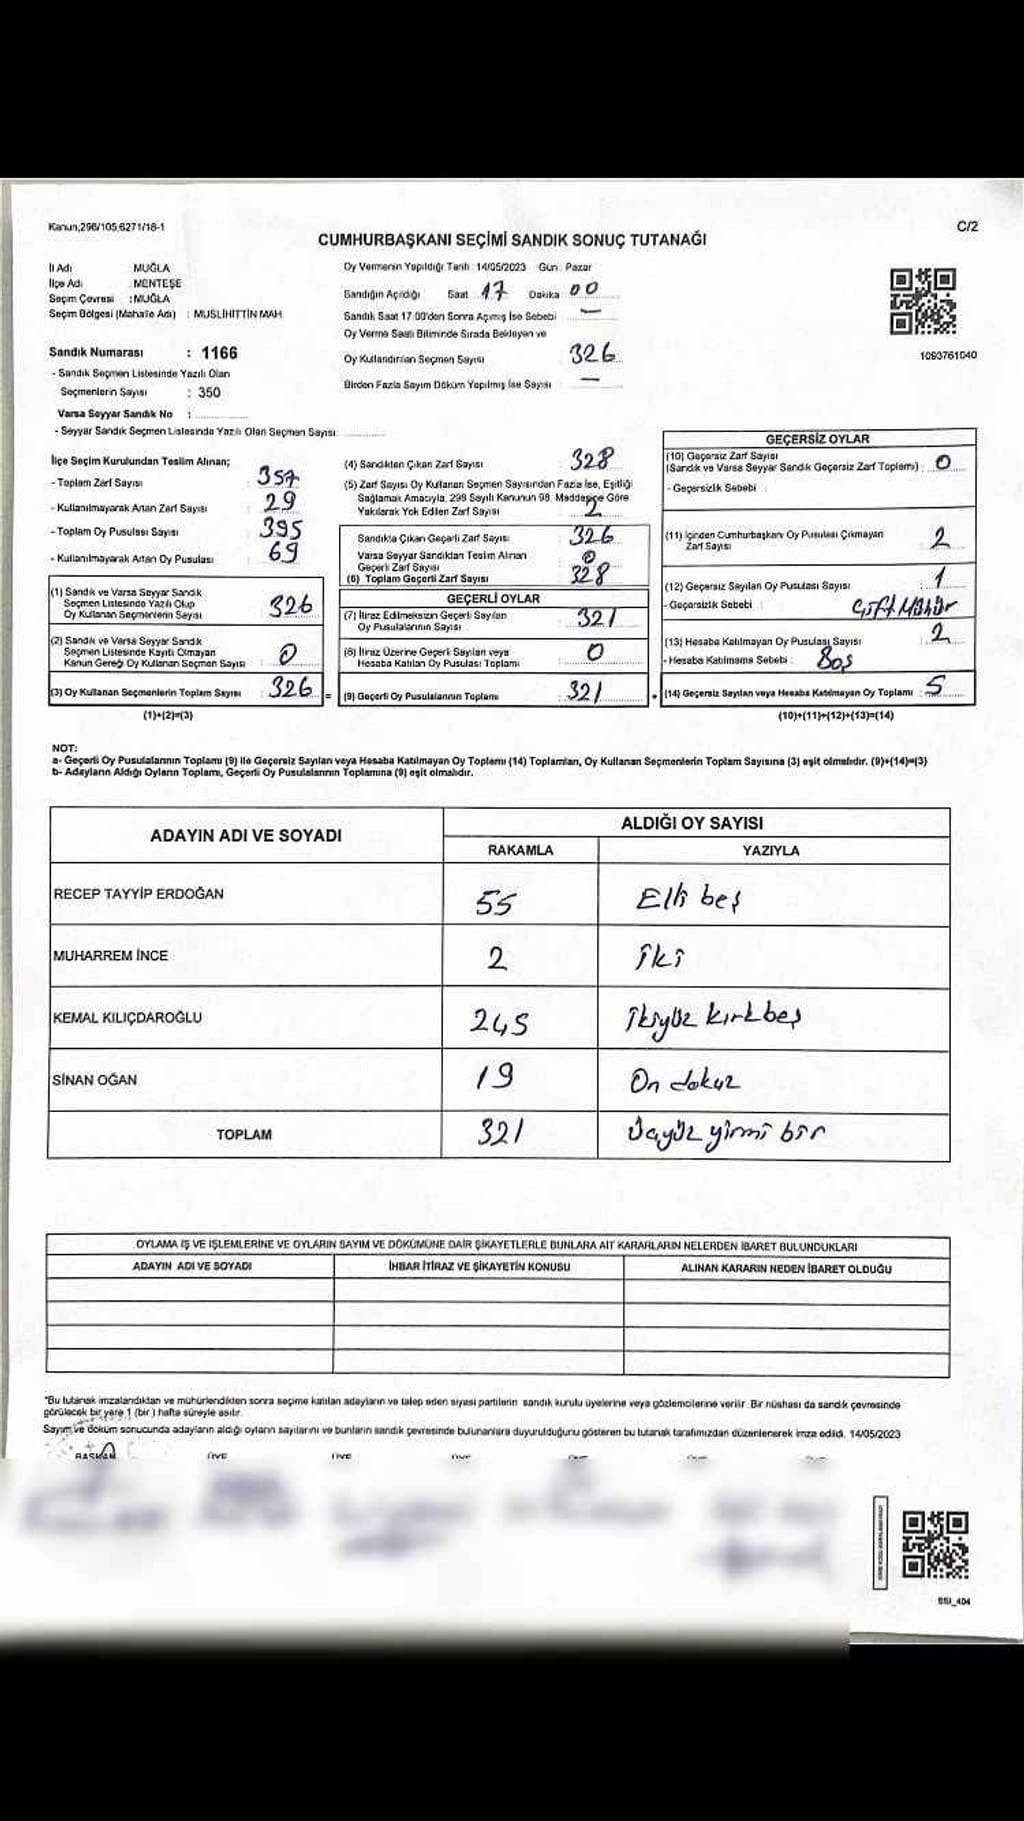 Kanun;298/105,6271/18-1
C/2
CUMHURBAŞKANI SEÇİMİ SANDIK SONUÇ TUTANAĞI
İl Adı : MUĞLA
İlçe Adı : MENTEŞE
Seçim Çevresi : MUĞLA
Seçim Bölgesi (Mahalle Adı) : MUSLİHİTTİN MAH.
Sandık Numarası : 1166
- Sandık Seçmen Listesinde Yazılı Olan
Seçmenlerin Sayısı : 350
Varsa Seyyar Sandık No :
- Seyyar Sandık Seçmen Listesinde Yazılı Olan Seçmen Sayısı:
Oy Vermenin Yapıldığı Tarih : 14/05/2023 Gün : Pazar
Sandığın Açıldığı Saat 17 Dakika 00
Sandık Saat 17:00'den Sonra Açımış İse Sebebi : —
Oy Verme Saati Bitiminde Sırada Bekleyen ve
Oy Kullandırılan Seçmen Sayısı 326
Birden Fazla Sayım Döküm Yapılmış İse Sayısı : —
1093761040
İlçe Seçim Kurulundan Teslim Alınan;
- Toplam Zarf Sayısı : 357
- Kullanılmayarak Artan Zarf Sayısı : 29
- Toplam Oy Pusulası Sayısı : 395
- Kullanılmayarak Artan Oy Pusulası : 69
(1) Sandık ve Varsa Seyyar Sandık
Seçmen Listesinde Yazılı Olup
Oy Kullanan Seçmenlerin Sayısı : 326
(2) Sandık ve Varsa Seyyar Sandık
Seçmen Listesinde Kayıtlı Olmayan
Kanun Gereği Oy Kullanan Seçmen Sayısı : 0
(3) Oy Kullanan Seçmenlerin Toplam Sayısı : 326 =
(1)+(2)=(3)
(4) Sandıktan Çıkan Zarf Sayısı : 328
(5) Zarf Sayısı Oy Kullanan Seçmen Sayısından Fazla İse, Eşitliği
Sağlamak Amacıyla, 298 Sayılı Kanunun 98. Maddesine Göre
Yakılarak Yok Edilen Zarf Sayısı : 2
Sandıkta Çıkan Geçerli Zarf Sayısı : 326
Varsa Seyyar Sandıktan Teslim Alınan
Geçerli Zarf Sayısı : 0
(6) Toplam Geçerli Zarf Sayısı : 328
GEÇERLİ OYLAR
(7) İtiraz Edilmeksizin Geçerli Sayılan
Oy Pusulalarının Sayısı : 321
(8) İtiraz Üzerine Geçerli Sayılan veya
Hesaba Katılan Oy Pusulası Toplamı : 0
(9) Geçerli Oy Pusulalarının Toplamı : 321 +
GEÇERSİZ OYLAR
(10) Geçersiz Zarf Sayısı
(Sandık ve Varsa Seyyar Sandık Geçersiz Zarf Toplamı) : 0
- Geçersizlik Sebebi :
(11) İçinden Cumhurbaşkanı Oy Pusulası Çıkmayan
Zarf Sayısı : 2
(12) Geçersiz Sayılan Oy Pusulası Sayısı : 1
- Geçersizlik Sebebi : Çift Mühür
(13) Hesaba Katılmayan Oy Pusulası Sayısı : 2
- Hesaba Katılmama Sebebi : Boş
(14) Geçersiz Sayılan veya Hesaba Katılmayan Oy Toplamı : 5
(10)+(11)+(12)+(13)=(14)
NOT:
a- Geçerli Oy Pusulalarının Toplamı (9) ile Geçersiz Sayılan veya Hesaba Katılmayan Oy Toplamı (14) Toplamları, Oy Kullanan Seçmenlerin Toplam Sayısına (3) eşit olmalıdır. (9)+(14)=(3)
b- Adayların Aldığı Oyların Toplamı, Geçerli Oy Pusulalarının Toplamına (9) eşit olmalıdır.
ADAYIN ADI VE SOYADI
ALDIĞI OY SAYISI
RAKAMLA YAZIYLA
RECEP TAYYİP ERDOĞAN 55 Elli beş
MUHARREM İNCE 2 iki
KEMAL KILIÇDAROĞLU 245 ikiyüz kırkbeş
SİNAN OĞAN 19 On dokuz
TOPLAM 321 Üçyüz yirmi bir
OYLAMA İŞ VE İŞLEMLERİNE VE OYLARIN SAYIM VE DÖKÜMÜNE DAİR ŞİKAYETLERLE BUNLARA AİT KARARLARIN NELERDEN İBARET BULUNDUKLARI
ADAYIN ADI VE SOYADI İHBAR İTİRAZ VE ŞİKAYETİN KONUSU ALINAN KARARIN NEDEN İBARET OLDUĞU
*Bu tutanak imzalandıktan ve mühürlendikten sonra seçime katılan adayların ve talep eden siyasi partilerin sandık kurulu üyelerine veya gözlemcilerine verilir. Bir nüshası da sandık çevresinde
görülecek bir yere 1 (bir) hafta süreyle asılır.
Sayım ve döküm sonucunda adayların aldığı oyların sayılarını ve bunların sandık çevresinde bulunanlara duyurulduğunu gösteren bu tutanak tarafımızdan düzenlenerek imza edildi. 14/05/2023
BAŞKAN ÜYE ÜYE ÜYE ÜYE ÜYE ÜYE
SSI_404